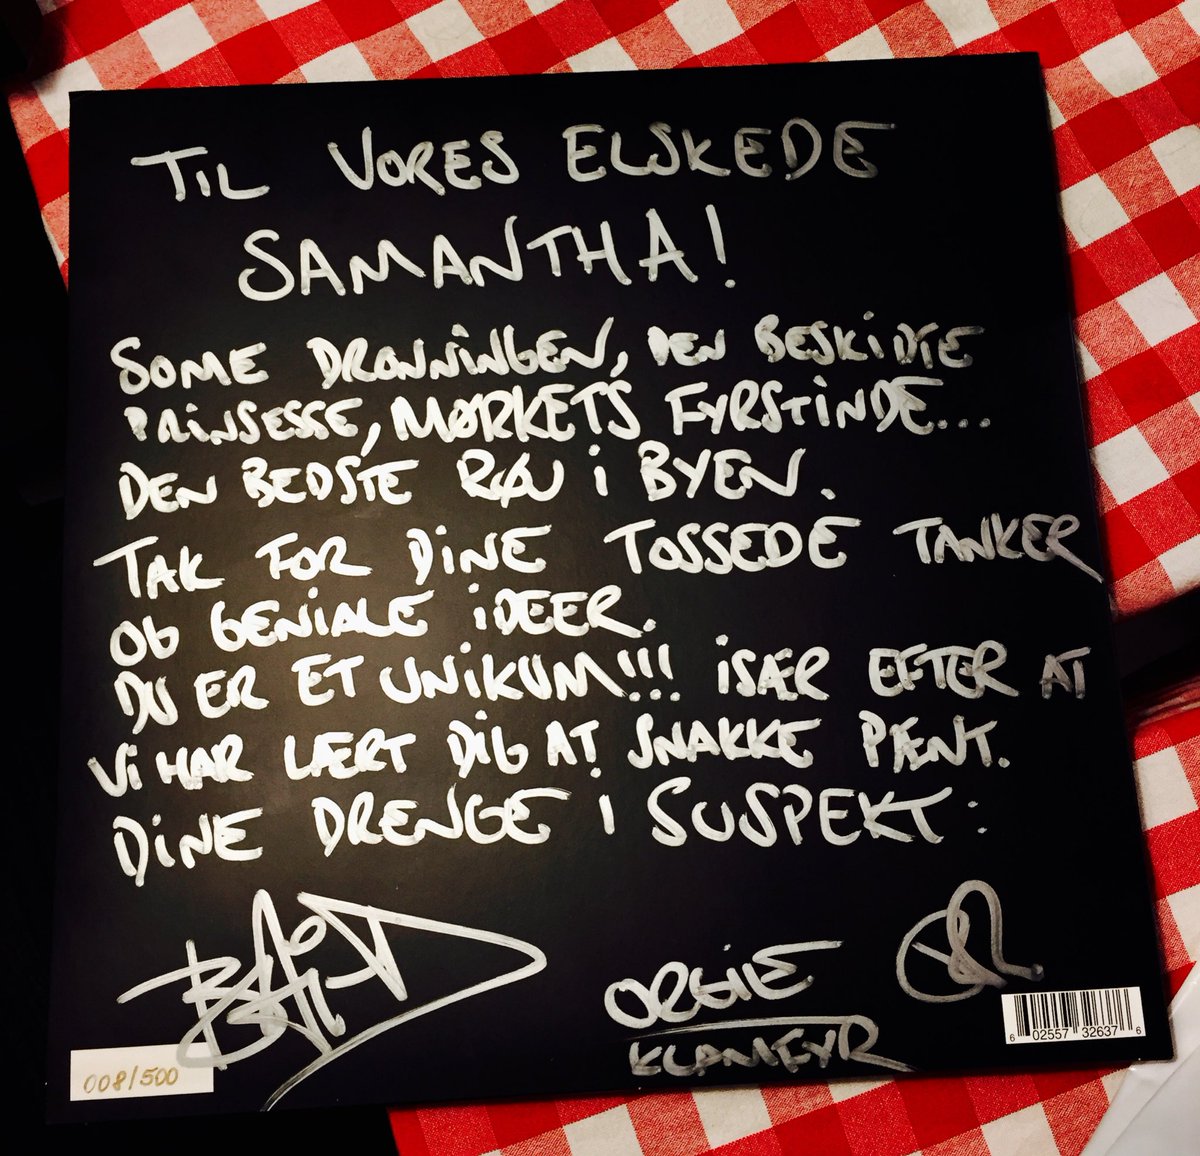 TIL VORES ELSKEDE
SAMANTHA!
SOME DRONNINGEN, DEN BESKIDTE
PRINSESSE, MØRKETS FYRSTINDE...
DEN BEDSTE RØV I BYEN.
TAK FOR DINE TOSSEDE TANKER
OG GENIALE IDEER.
DU ER ET UNIKUM!!! ISÆR EFTER AT
VI HAR LÆRT DIG AT SNAKKE PÆNT.
DINE DRENGE I SUSPEKT:
ORGIE
KLAMFYR
008/500
6 02557 32637 6